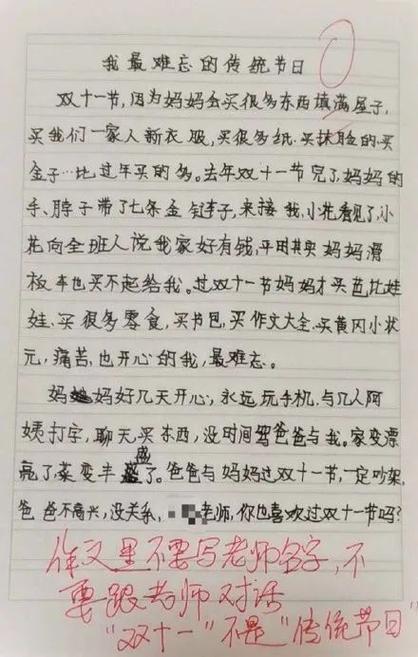 我最难忘的传统节日
双十一节,因为妈妈会买很多东西填满屋子,
买我们一家人新衣服,买很多纸.买抹脸的.买
金子…比过年买的多。去年双十一节完了,妈妈的
手、脖子带了七条金链子,来接我,小花看见了,小
花向全班人说我家好有钱,平时其实妈妈滑
板车也买不起给我。过双十一节妈妈才买芭比娃
娃、买很多零食,买书包,买作文大全.买黄冈小状
元,痛苦,也开心的我,最难忘。
妈妈好几天开心,永远玩手机.与几人阿
姨打字,聊天买东西,没时间骂爸爸与我。家变漂
亮了菜变丰盛了。爸爸与妈妈过双十一节,一定吵架,
爸爸不高兴,没关系,老师,你也喜欢过双十一节吗?
作文里不要写老师名字,不
要跟老师对话
"双十一"不是"传统节日"